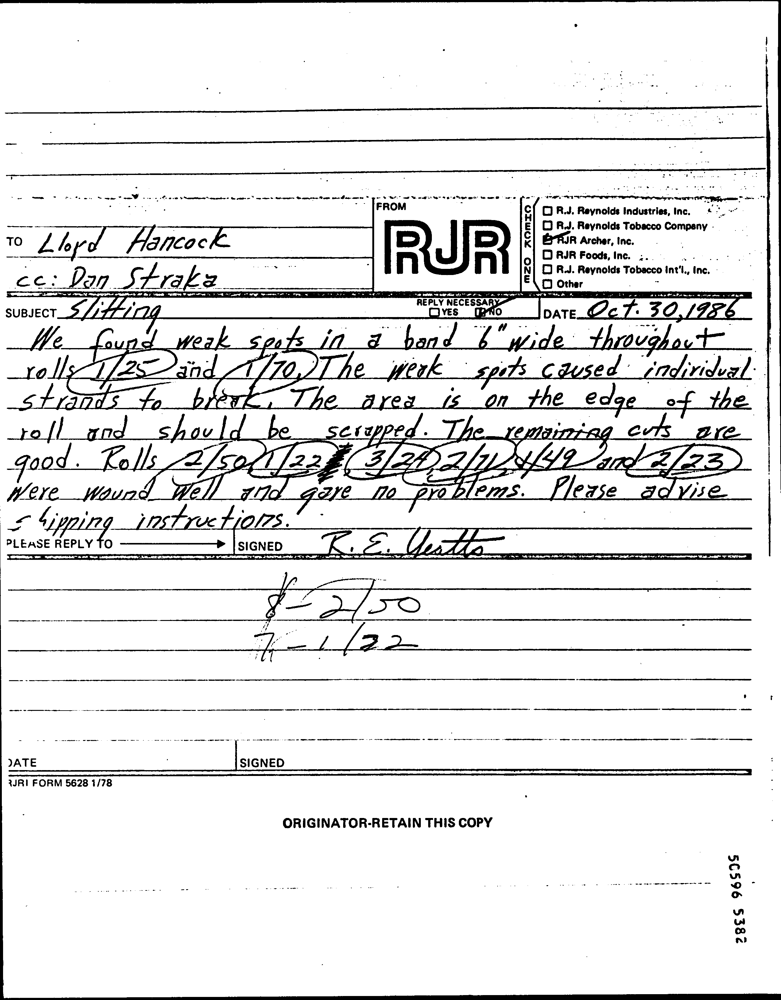 FROM
RJR
CHECK ONE
☐ R.J. Reynolds Industries, Inc.
☐ R.J. Reynolds Tobacco Company
☑ RJR Archer, Inc.
☐ RJR Foods, Inc.
☐ R.J. Reynolds Tobacco Int'l., Inc.
☐ Other
TO Lloyd Hancock
cc: Dan Straka
SUBJECT Slitting
REPLY NECESSARY
☐ YES ☑ NO
DATE Oct. 30, 1986
We found weak spots in a band 6" wide throughout
rolls 1/25 and 1/70. The weak spots caused individual
strands to break. The area is on the edge of the
roll and should be scrapped. The remaining cuts are
good. Rolls 2/50, 1/22, 3/24, 2/71, 1/49 and 2/23
were wound well and gave no problems. Please advise
shipping instructions.
PLEASE REPLY TO
SIGNED R. E. Yeatts
8 - 2/50
7 - 1/22
DATE
SIGNED
RJRI FORM 5628 1/78
ORIGINATOR-RETAIN THIS COPY
50596 5382